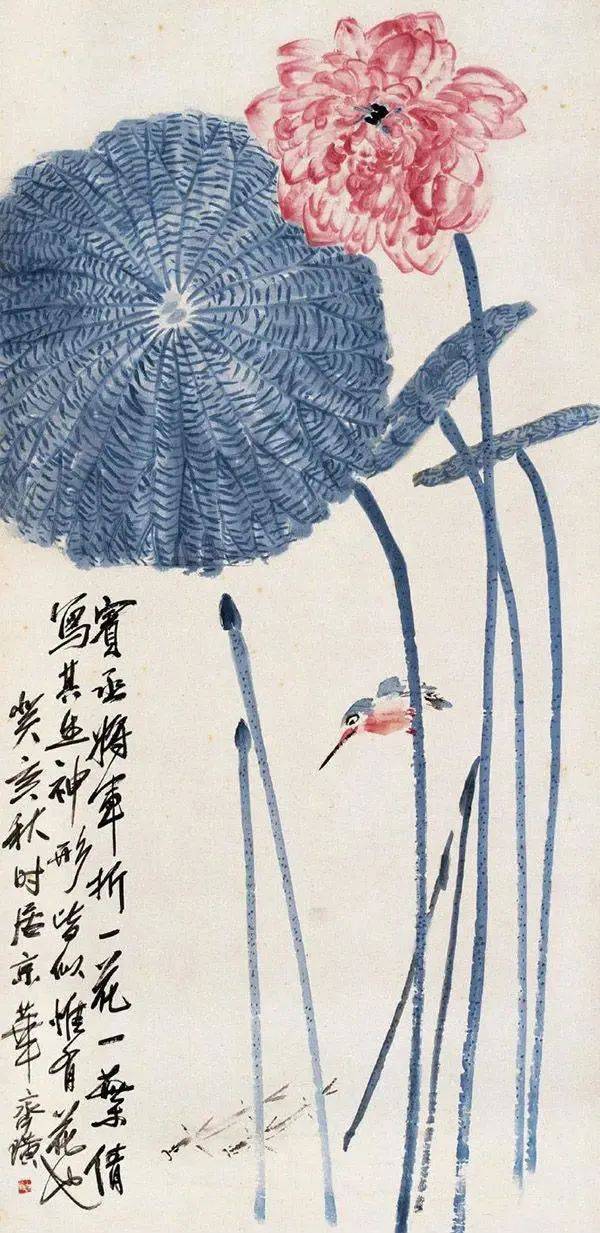 賓丞將軍折一花一葉倩
寫其照神形皆似惟有花也
癸亥秋时居京華齊璜